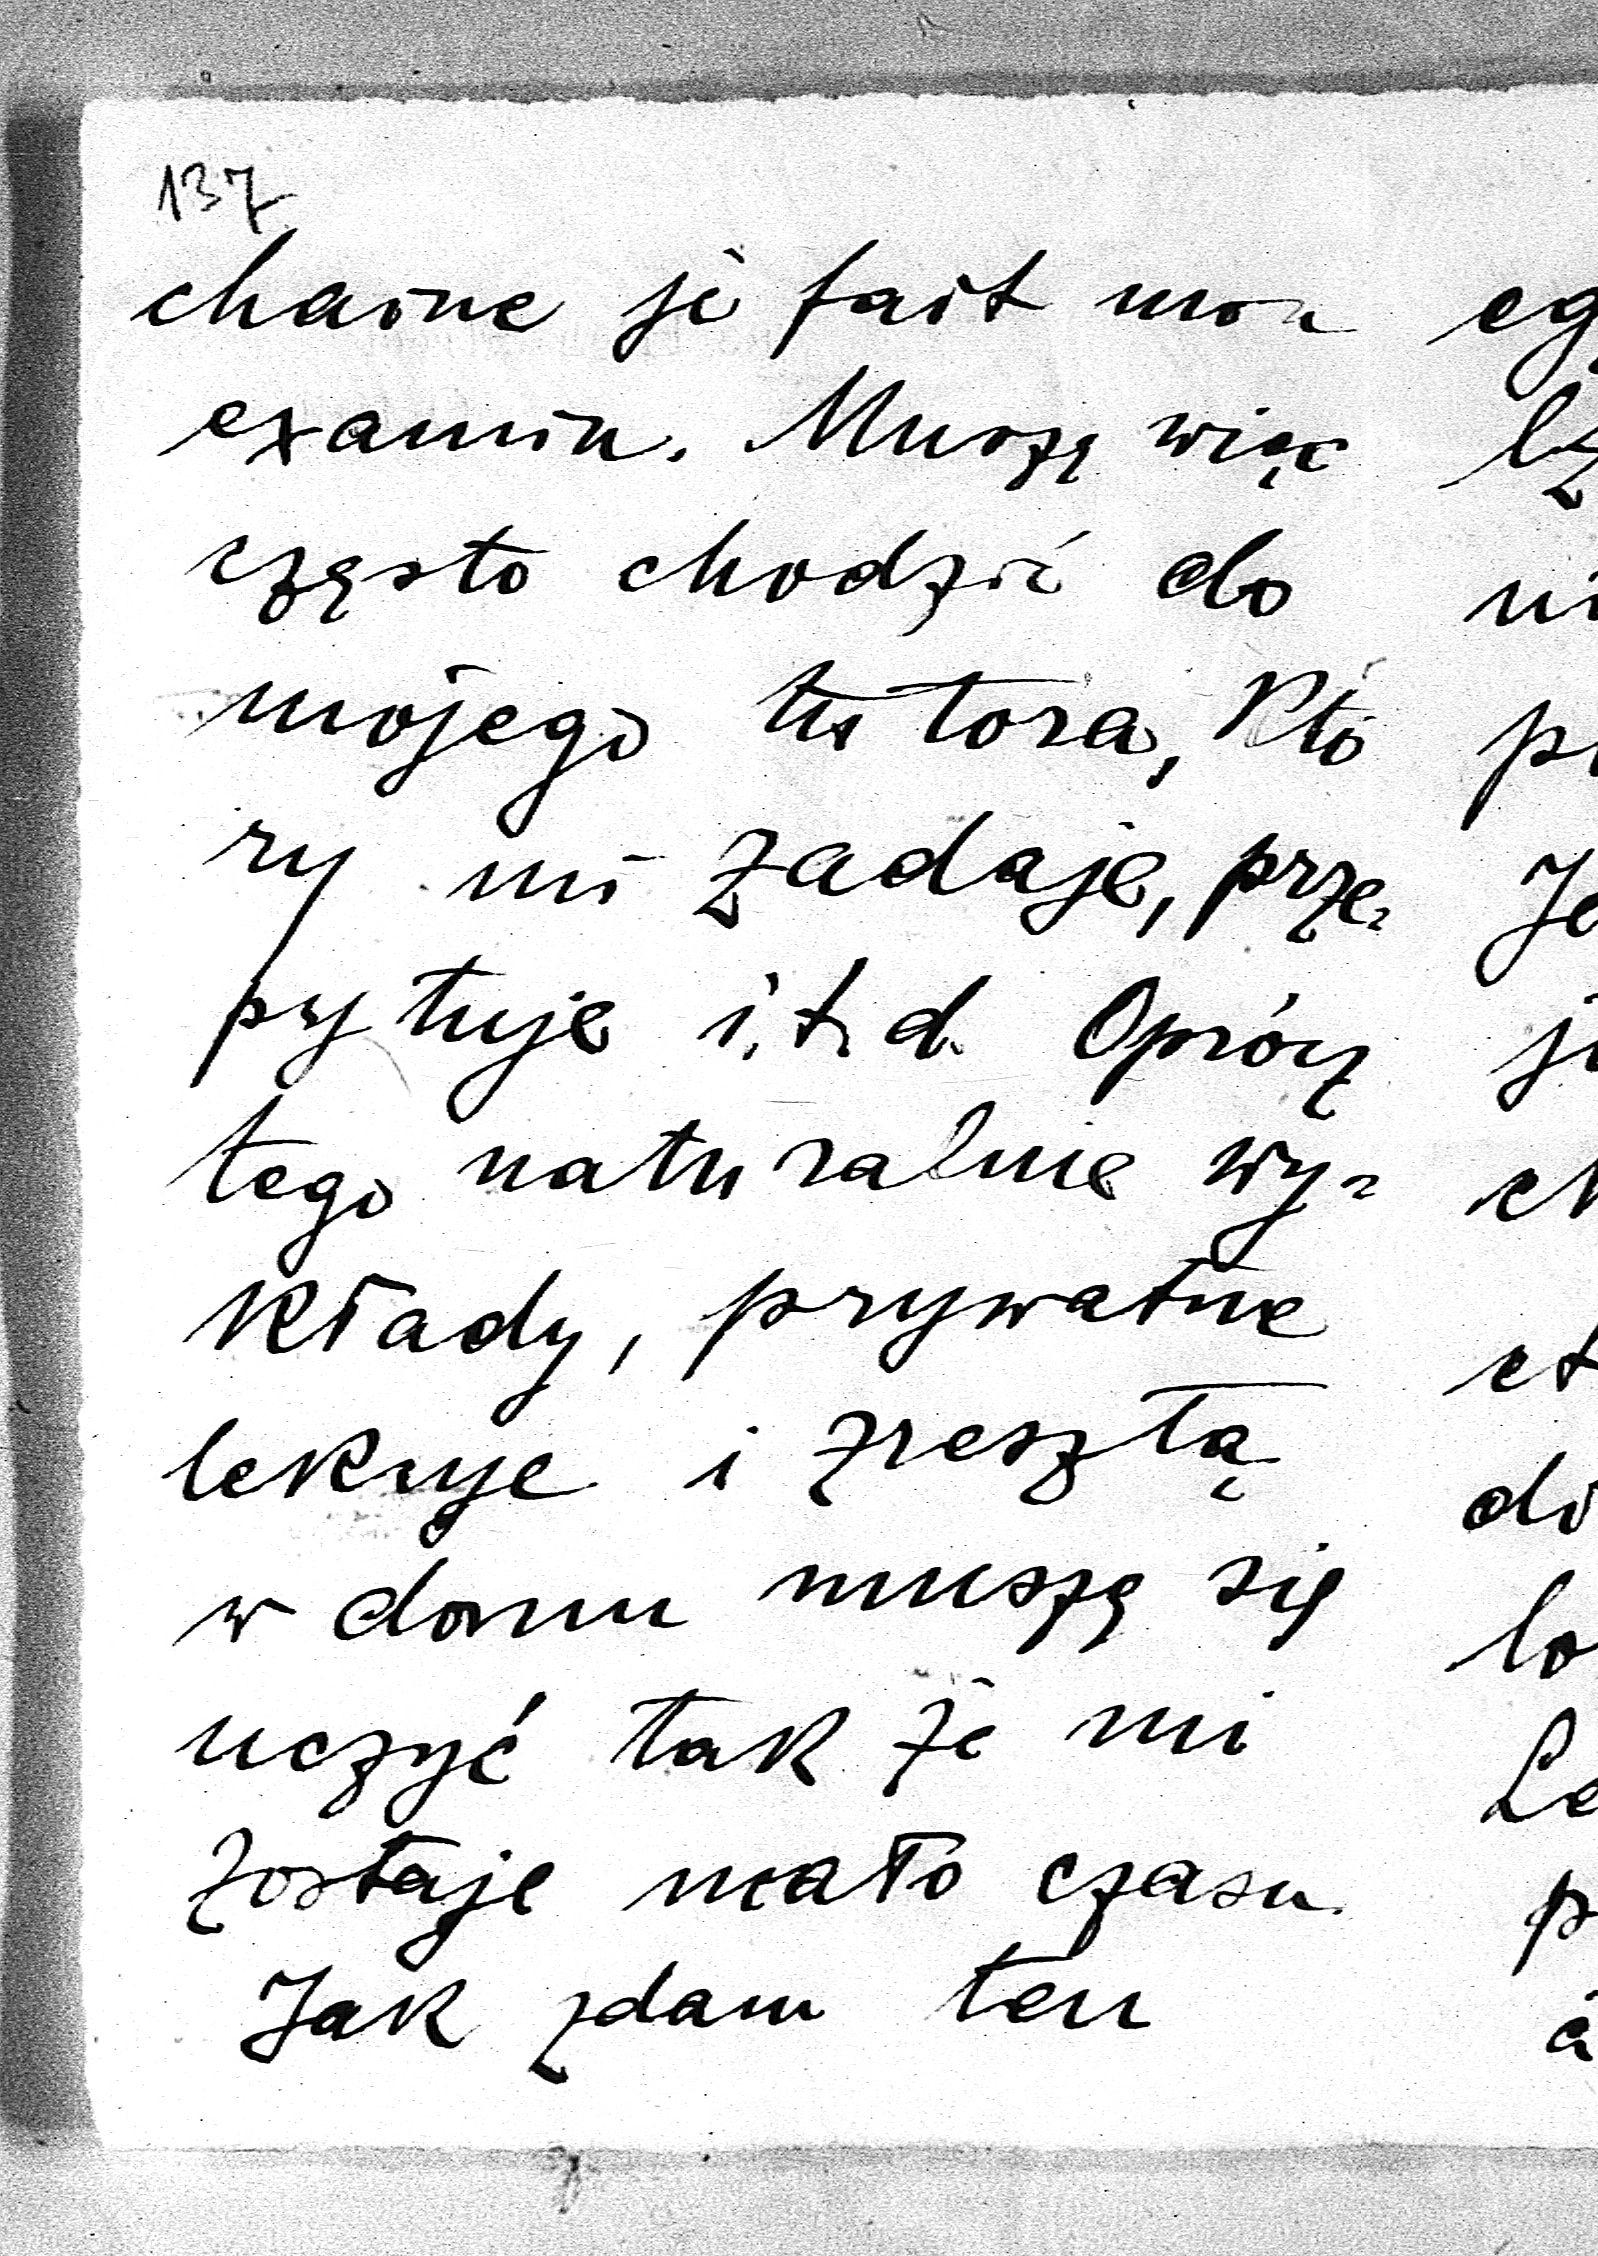 137
chaine je fait mon
examin. Muszę więc
często chodzić do
mojego tutora, Któ
ry mi zadaje, prze-
pytuje i.t.d. Oprócz
tego naturalnie wy-
Kłady, prywatne
lekcye i zresztą
w domu muszę się
uczyć tak że mi
zostaje mało czasu.
Jak zdam ten